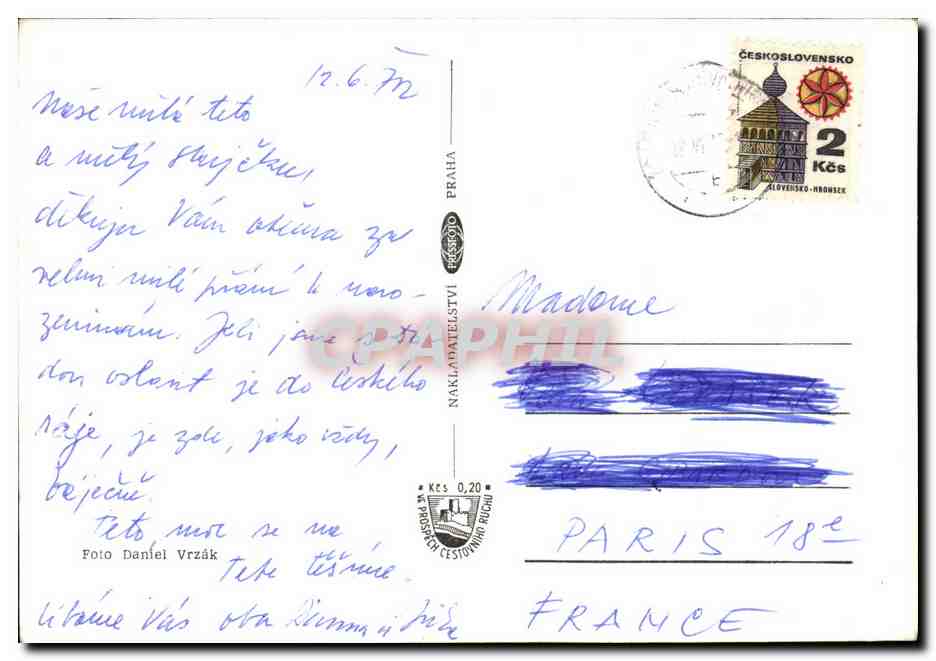 12. 6. 72
Naše milá teto
a milý strýčku,
děkuji Vám oběma za
velmi milé přání k naro-
zeninám. Jeli jsme s
oslavit je do Českého
ráje, je zde, jako vždy,
báječně.
Teto, moc se na
Tebe těšíme.
Líbáme Vás oba
Foto Daniel Vrzák
NAKLADATELSTVÍ PRESSFOTO PRAHA
Kčs 0,20
VE PROSPĚCH CESTOVNÍHO RUCHU
ČESKOSLOVENSKO
2
Kčs
SLOVENSKO-HRONSEK
Madame
PARIS 18e
FRANCE
CPAPHIL